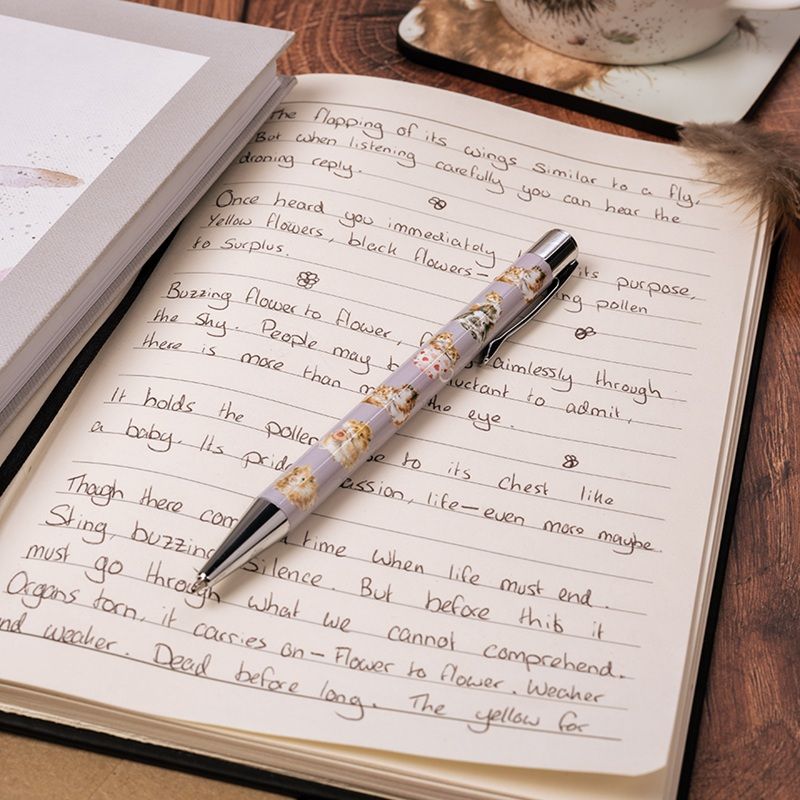 The flapping of its wings similar to a fly,
But when listening carefully you can hear the
droning reply.
Once heard you immediately its purpose,
Yellow flowers, black flowers- ing pollen
to surplus.
Buzzing flower to flower, aimlessly through
the sky. People may b luctant to admit,
there is more than m the eye.
It holds the pollen se to its chest like
a baby. Its prid assion, life-even more maybe.
Though there com a time when life must end.
Sting, buzzing silence. But before this it
must go through what we cannot comprehend.
Organs torn, it carries on-Flower to flower. Weaker
nd weaker. Dead before long. The yellow for